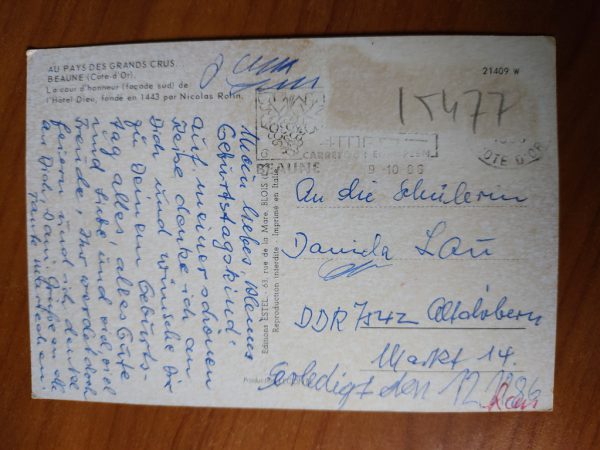 AU PAYS DES GRANDS CRUS
BEAUNE (Côte-d'Or).
La cour d'honneur (façade sud) de
l'Hôtel Dieu, fondé en 1443 par Nicolas Rolin.
21409 W
15477
BEAUNE 9-10 86
COTE D'OR
Mein liebes, kleines
Geburtstagskind!
Auf meiner schönen
Reise denke ich an
Dich und wünsche Dir
zu Deinem Geburts-
tag alles, alles Gute
und Liebe und viel, viel
Freude. Ihr werdet doch
feiern und ich denke
an Dich, Dani. Grüße an alle
Tante
Editions ESTEL - 63, rue de la Mare, BLOIS
Reproduction interdite Imprimé en Italie
An die Schülerin
Daniela Lau
DDR 7542 Altdöbern
Markt 14.
erledigt den 12.12.86